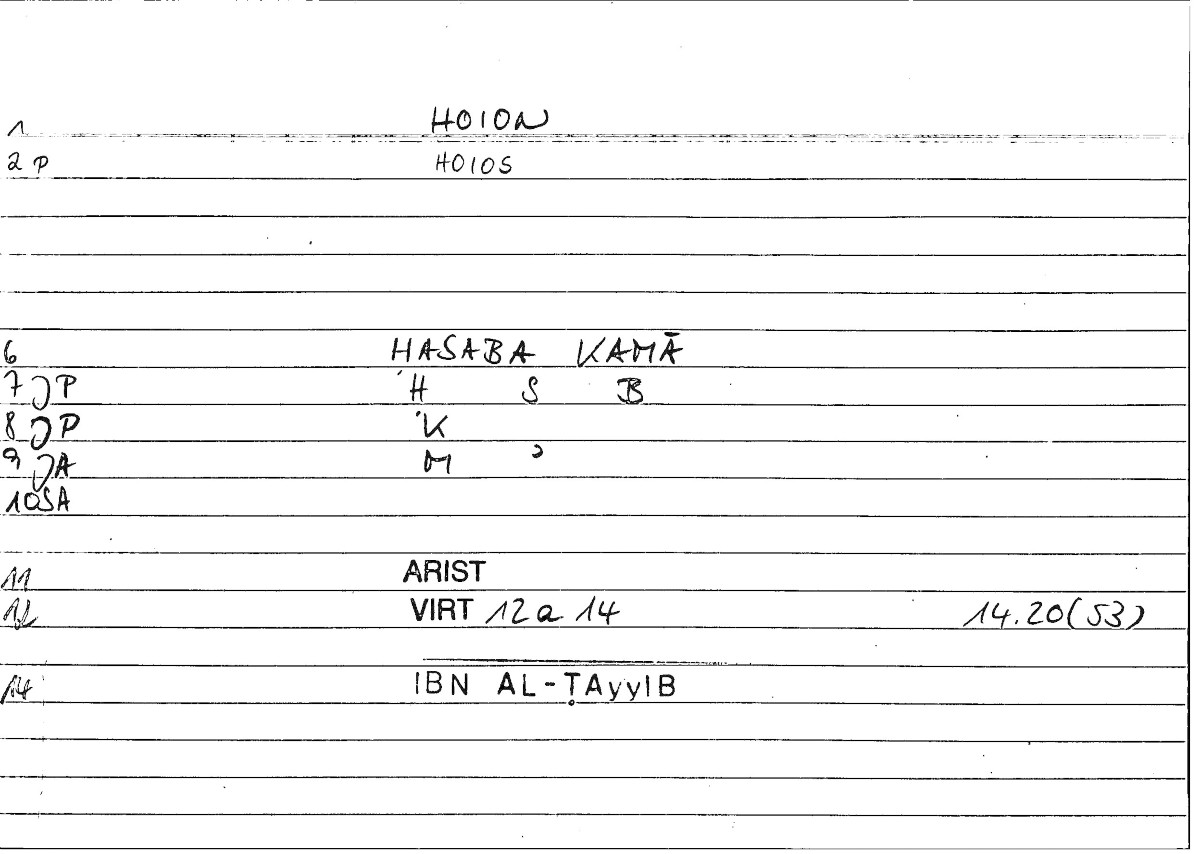 1 HOION
2 P HOIOS
6 HASABA KAMĀ
7 JP 'H S B
8 JP 'K
9 JA M ʾ
10 SA
11 ARIST
12 VIRT 12 a 14 14.20(53)
14 IBN AL-ṬAyyIB